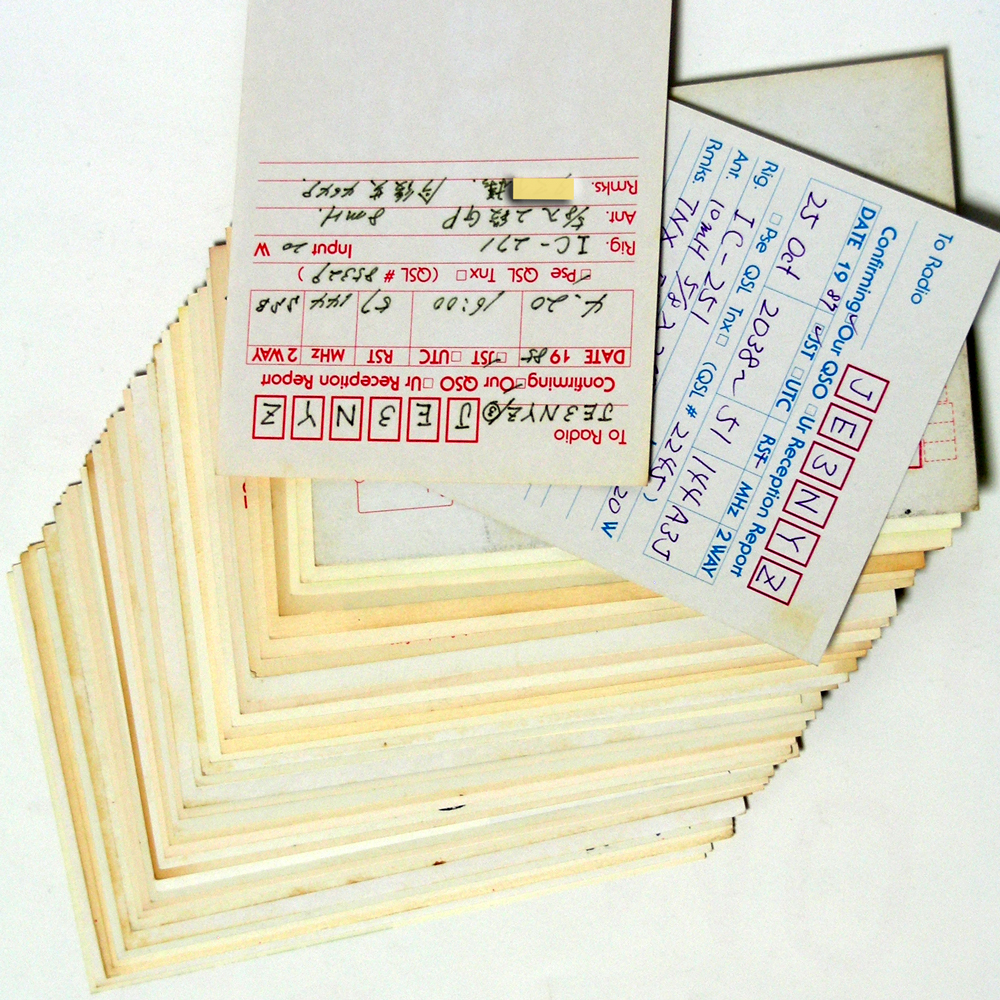 To Radio JE3NYZ/3 J E 3 N Y Z
Confirming Our QSO □ Ur Reception Report
DATE 19 85 JST □ UTC RST MHz 2 WAY
4.20 16:00 57 144 SSB
Pse QSL Tnx □ (QSL # 85329 )
Rig. IC-271 Input 20 W
Ant. 5/8λ2段GP 8mH.
Rmks.
To Radio J E 3 N Y Z
Confirming Our QSO □ Ur Reception Report
DATE 19 87 JST □ UTC RST MHz 2 WAY
25 Oct 2038~ 51 144 A3J
□ Pse QSL Tnx □ (QSL # 2245 )
Rig. IC-251 20 W
Ant. 10mH 5/8λ2
Rmks. TNX